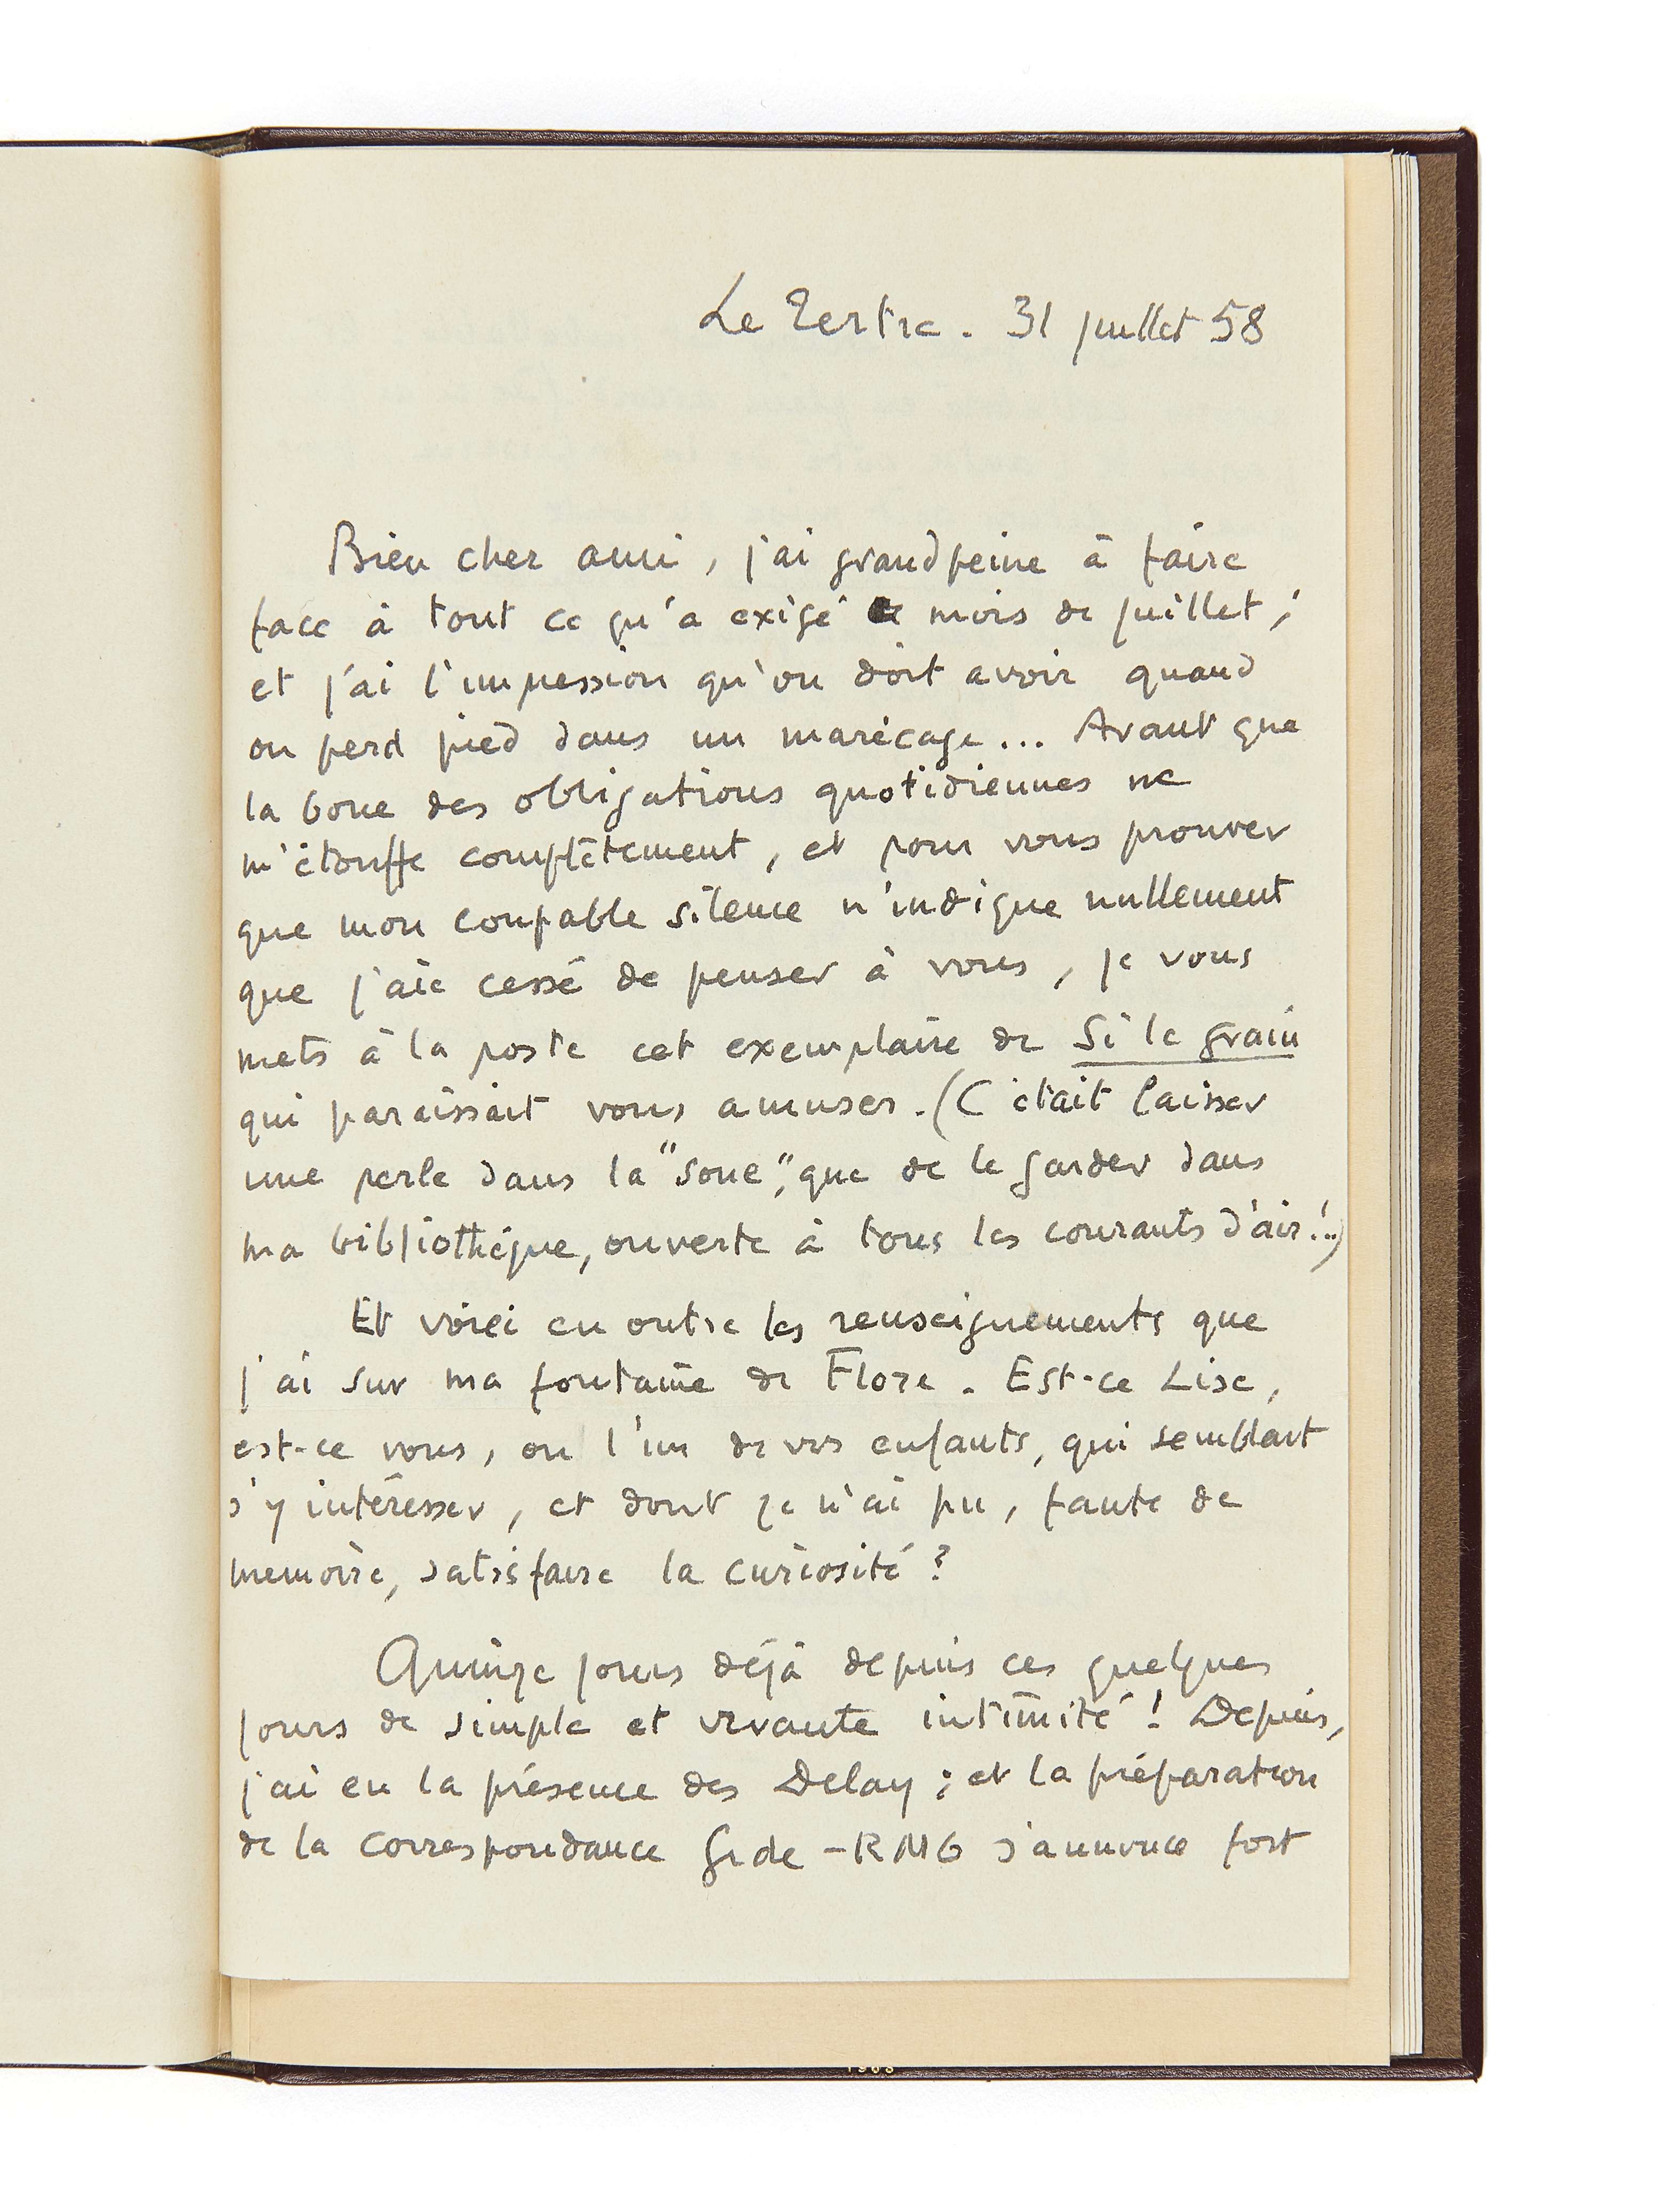 Le Tertre. 31 juillet 58
Bien cher ami, j'ai grand peine à faire
face à tout ce qu'a exigé le mois de juillet ;
et j'ai l'impression qu'on doit avoir quand
on perd pied dans un marécage... Avant que
la boue des obligations quotidiennes ne
m'étouffe complètement, et pour vous prouver
que mon coupable silence n'indique nullement
que j'aie cessé de penser à vous, je vous
mets à la poste cet exemplaire de Si le grain
qui paraissait vous amuser. (C'était laisser
une perle dans la "soue", que de le garder dans
ma bibliothèque, ouverte à tous les courants d'air !..)
Et voici en outre les renseignements que
j'ai sur ma fontaine de Flore. Est-ce Lise,
est-ce vous, ou l'un de vos enfants, qui semblait
s'y intéresser, et dont je n'ai pu, faute de
memoire, satisfaire la curiosité ?
Quinze jours déjà depuis ces quelques
jours de simple et vivante intimité ! Depuis,
j'ai eu la présence des Delay ; et la préparation
de la Correspondance Gide - RMG s'annonce fort
1963